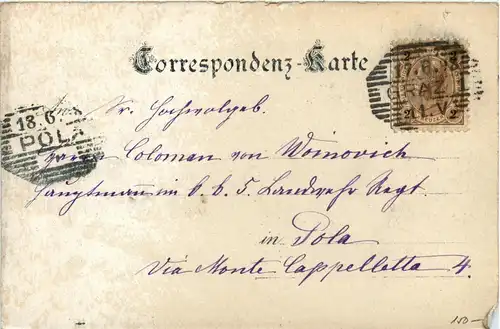 Correspondenz-Karte
17. 6.
GRAZ
1-V
2 2
18. 6
POLA
Sr. Hochwolgeb.
Coloman von Woinovich
Hauptmann im k. k. 5. Landwehr Regt.
in Pola
Via Monte Cappelletta 4.
150-